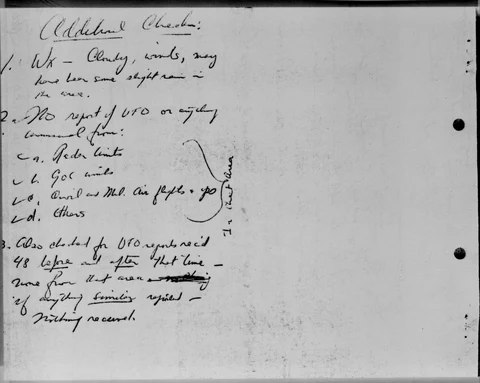 Additional Checks:
1. Wx — Cloudy, winds, may
have been some slight rain in
the area.
2. No report of UFO or anything
unusual from:
a. Radar Units
b. GOC units
c. Civil and Mil. Air flights
d. Others
In that area
3. Also checked for UFO reports rec'd
48 before and after that time —
none from that area
if anything similar reported —
Nothing received.